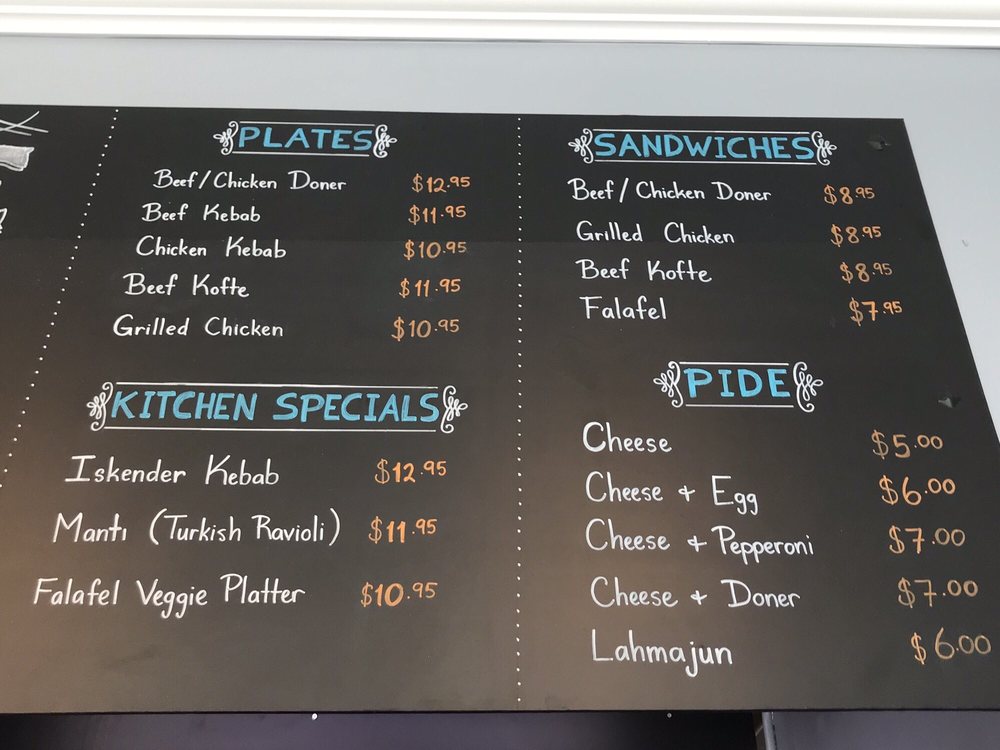 PLATES
Beef/Chicken Doner $12.95
Beef Kebab $11.95
Chicken Kebab $10.95
Beef Kofte $11.95
Grilled Chicken $10.95
KITCHEN SPECIALS
Iskender Kebab $12.95
Mantı (Turkish Ravioli) $11.95
Falafel Veggie Platter $10.95
SANDWICHES
Beef/Chicken Doner $8.95
Grilled Chicken $8.95
Beef Kofte $8.95
Falafel $7.95
PIDE
Cheese $5.00
Cheese + Egg $6.00
Cheese + Pepperoni $7.00
Cheese + Doner $7.00
Lahmajun $6.00